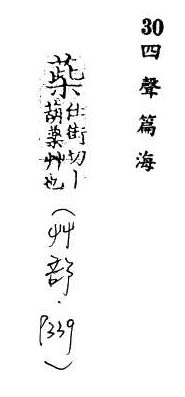 30四聲篇海
仕街切丨
葫藥艸也
(艸部·P339)